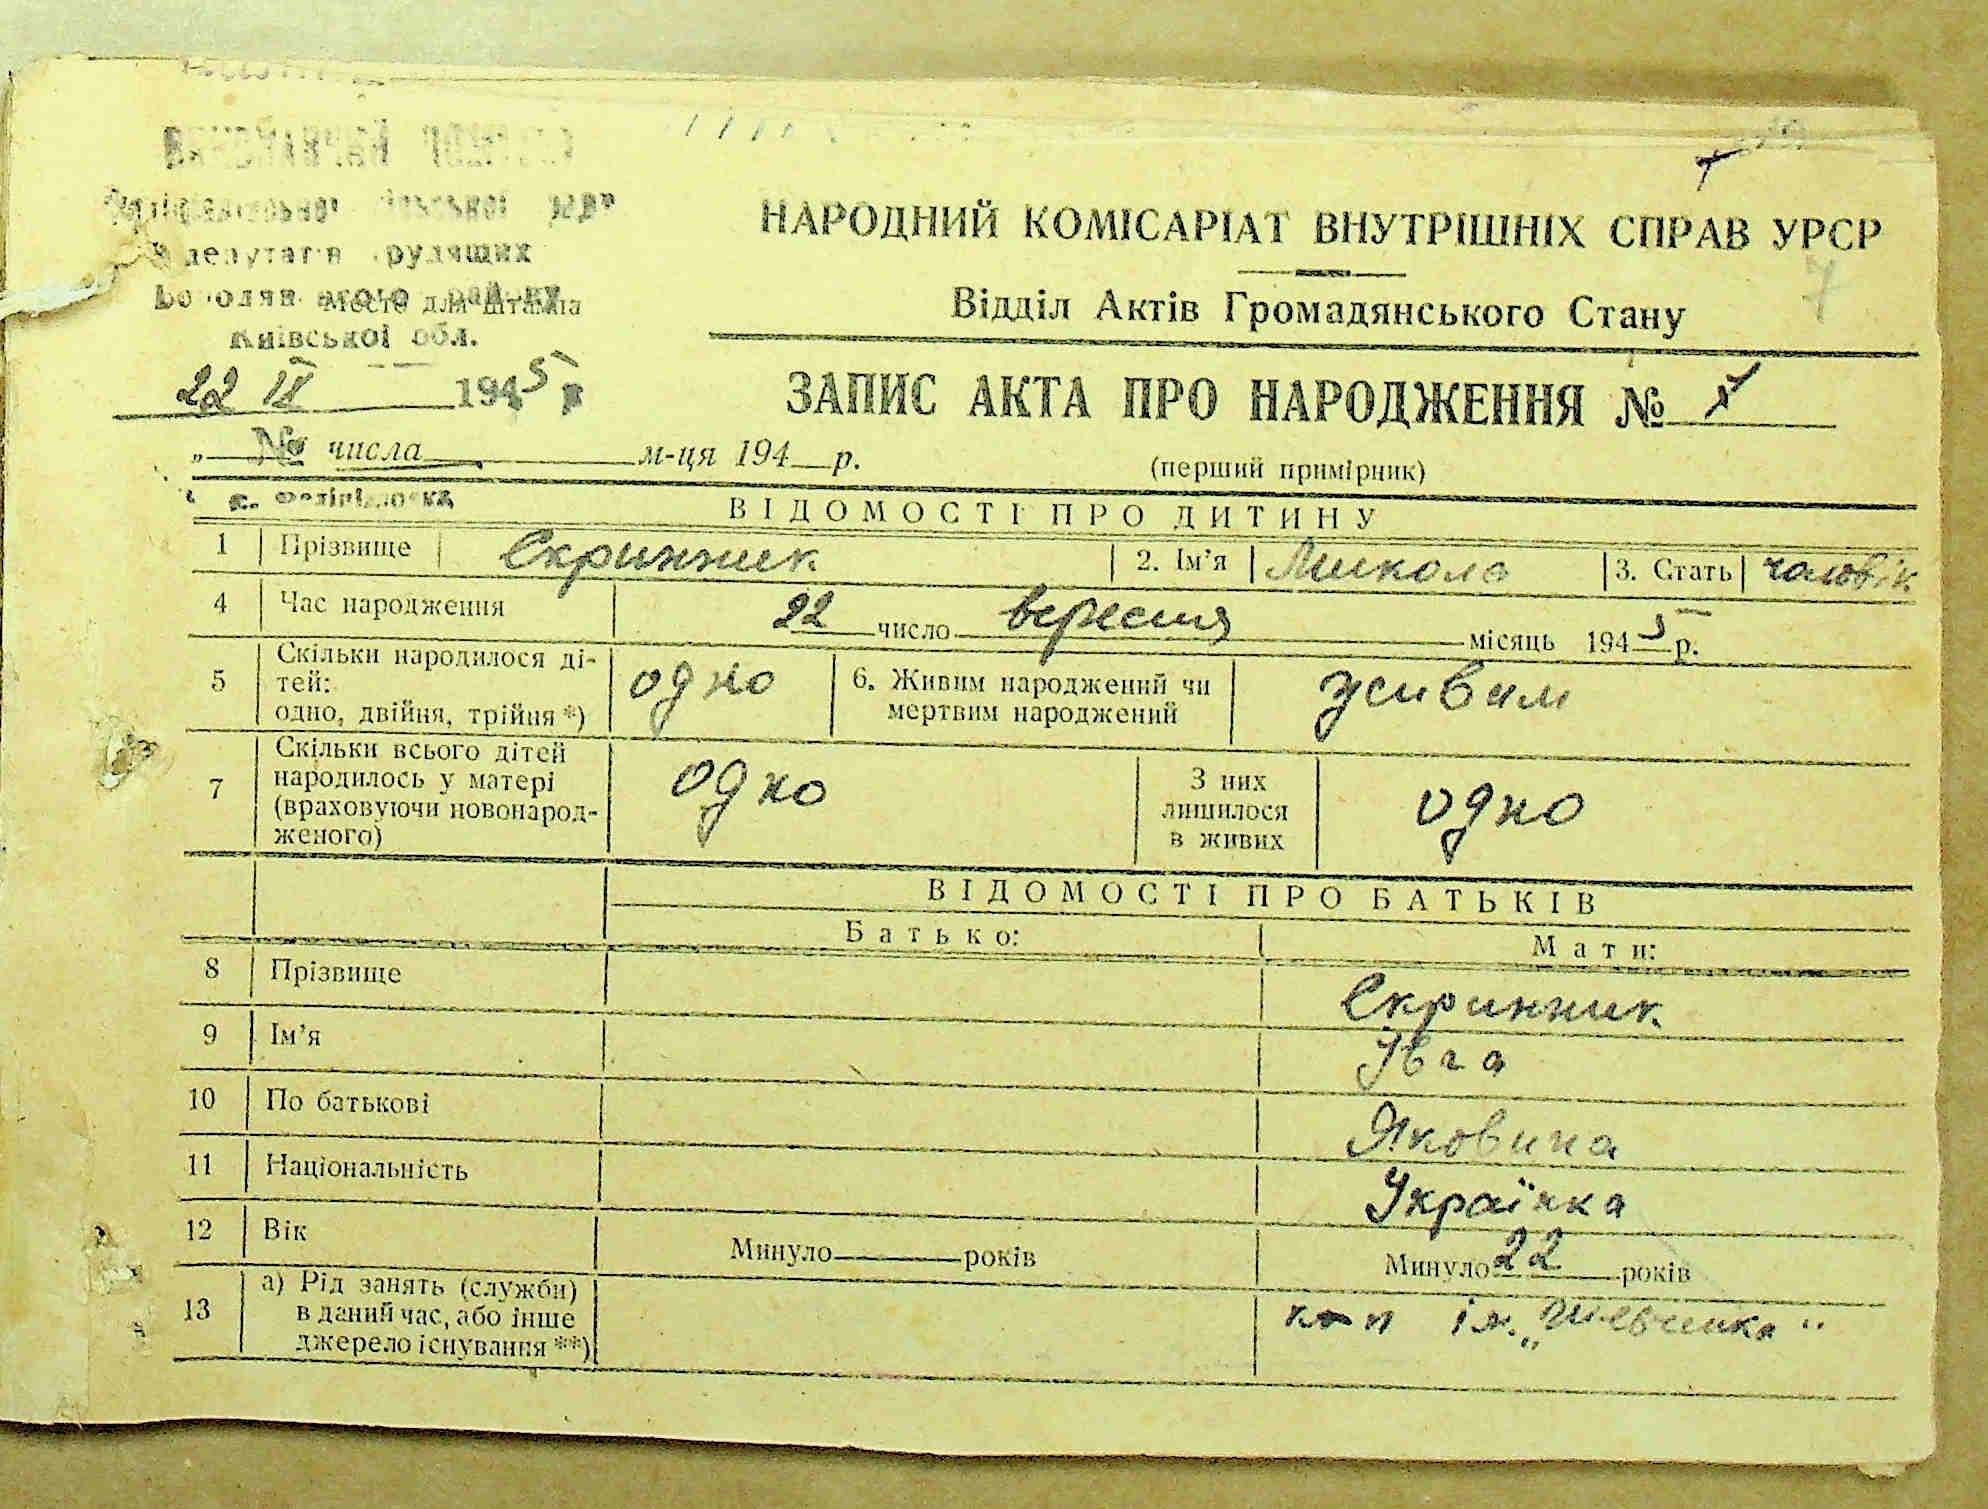 депутатів трудящих
Місце для штампа
Київської обл.
22 IX 1945 р
НАРОДНИЙ КОМІСАРІАТ ВНУТРІШНІХ СПРАВ УРСР
7
Відділ Актів Громадянського Стану
ЗАПИС АКТА ПРО НАРОДЖЕННЯ №
„ № числа м-ця 194 р.
(перший примірник)
ВІДОМОСТІ ПРО ДИТИНУ
1 Прізвище Скринник 2. Ім'я Микола 3. Стать чоловік
4 Час народження 22 число вересня місяць 1945 р.
5 Скільки народилося ді-
тей:
одно, двійня, трійня *) одно 6. Живим народжений чи
мертвим народжений живим
7 Скільки всього дітей
народилось у матері
(враховуючи новонарод-
женого) одно З них
лишилося
в живих одно
ВІДОМОСТІ ПРО БАТЬКІВ
Батько: Мати:
8 Прізвище Скринник
9 Ім'я Івга
10 По батькові Яковина
11 Національність Українка
12 Вік Минуло років Минуло 22 років
13 а) Рід занять (служби)
в даний час, або інше
джерело існування **) ім. „Шевченка"